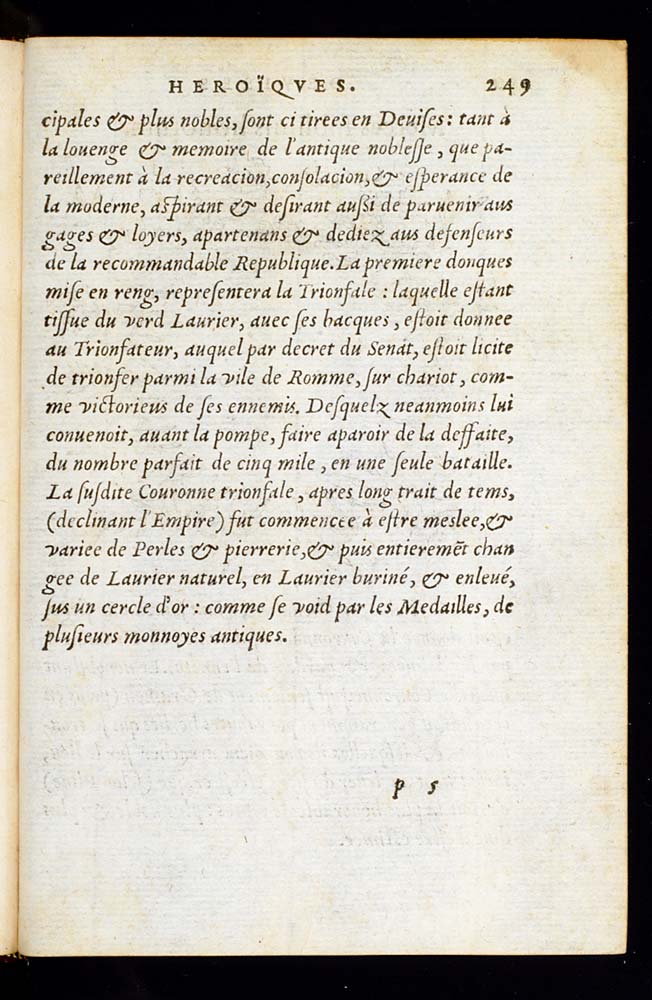 HEROÏQVES. 249
cipales & plus nobles, sont ci tirees en Deuises: tant à
la louenge & memoire de l'antique noblesse, que pa-
reillement à la recreacion, consolacion, & esperance de
la moderne, aspirant & desirant aussi de paruenir aus
gages & loyers, apartenans & dediez aus defenseurs
de la recommandable Republique. La premiere donques
mise en reng, representera la Trionfale: laquelle estant
tissue du verd Laurier, auec ses bacques, estoit donnee
au Trionfateur, auquel par decret du Senat, estoit licite
de trionfer parmi la vile de Romme, sur chariot, com-
me victorieus de ses ennemis. Desquelz neanmoins lui
conuenoit, auant la pompe, faire aparoir de la deffaite,
du nombre parfait de cinq mile, en une seule bataille.
La susdite Couronne trionfale, apres long trait de tems,
(declinant l'Empire) fut commencee à estre meslee, &
variee de Perles & pierrerie, & puis entieremẽt chan
gee de Laurier naturel, en Laurier buriné, & enleué,
sus un cercle d'or: comme se void par les Medailles, de
plusieurs monnoyes antiques.
p 5